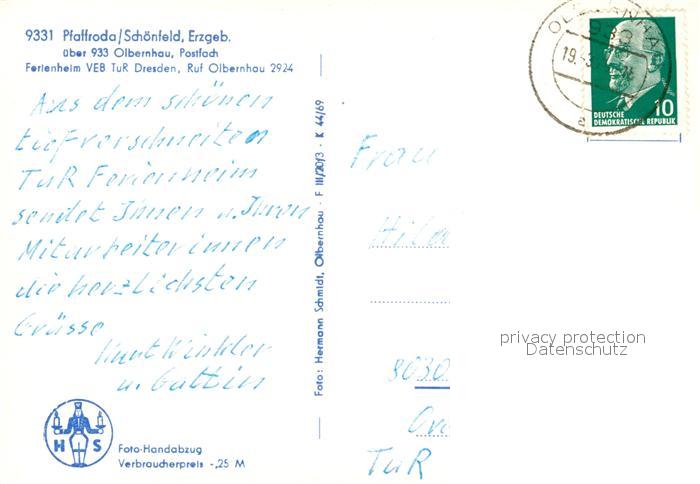 9331 Pfaffroda/Schönfeld, Erzgeb.
über 933 Olbernhau, Postfach
Ferienheim VEB TuR Dresden, Ruf Olbernhau 2924
Aus dem schönen
tiefverschneiten
TuR Ferienheim
sendet Ihnen u. Ihren
Mitarbeiterinnen
die herzlichsten
Grüsse
Kurt Winkler
u. Gattin
H S
Foto-Handabzug
Verbraucherpreis -,25 M
Foto: Hermann Schmidt, Olbernhau · F III/20/3 · K 44/69
933
19.-3.
a
10
DEUTSCHE
DEMOKRATISCHE REPUBLIK
Frau
8030
TuR
privacy protection
Datenschutz